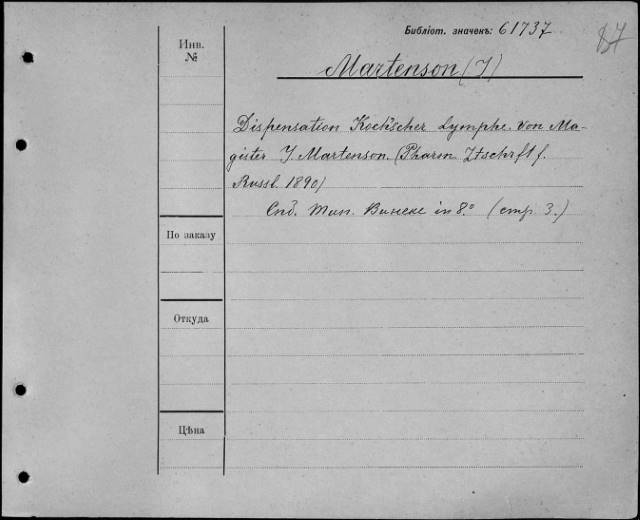 Библіот. значекъ: 61737
Инв.
№
Martenson (J)
Dispensation Koch'scher Lymphe. Von Ma-
gister J. Martenson. (Pharm Ztschrft f.
Russl. 1890)
Спб. Тип. Винеке in 8.º (стр. 3.)
По заказу
Откуда
Цѣна